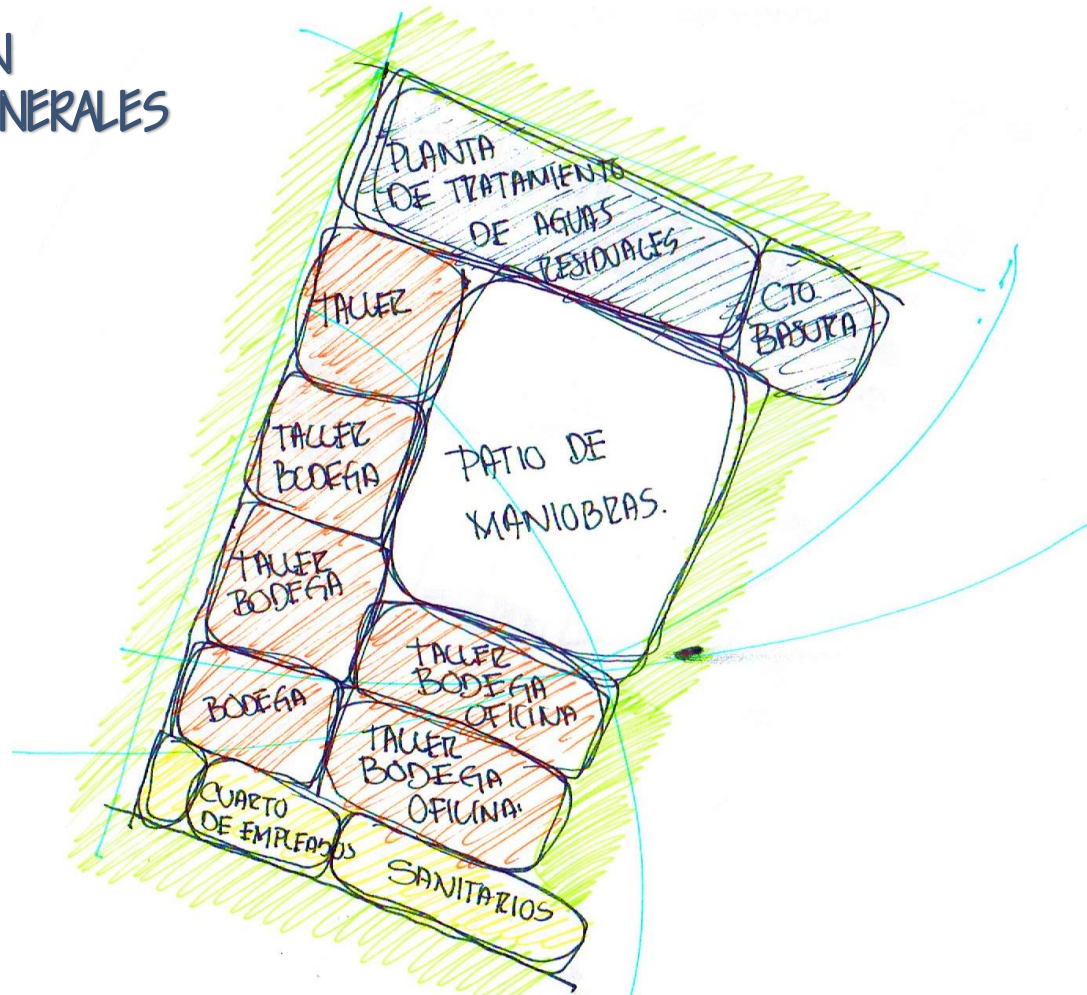 N
NERALES
PLANTA
DE TRATAMIENTO
DE AGUAS
RESIDUALES
CTO
BASURA
TALLER
TALLER
BODEGA
PATIO DE
MANIOBRAS.
TALLER
BODEGA
TALLER
BODEGA
OFICINA
BODEGA
TALLER
BODEGA
OFICINA
CUARTO
DE EMPLEADOS
SANITARIOS